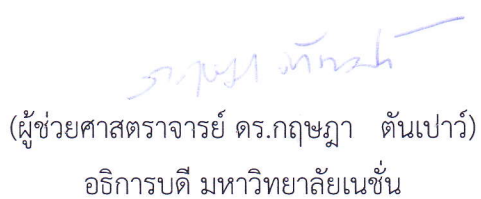 กฤษฎา ตันเปาว์
(ผู้ช่วยศาสตราจารย์ ดร.กฤษฎา ตันเปาว์)
อธิการบดี มหาวิทยาลัยเนชั่น